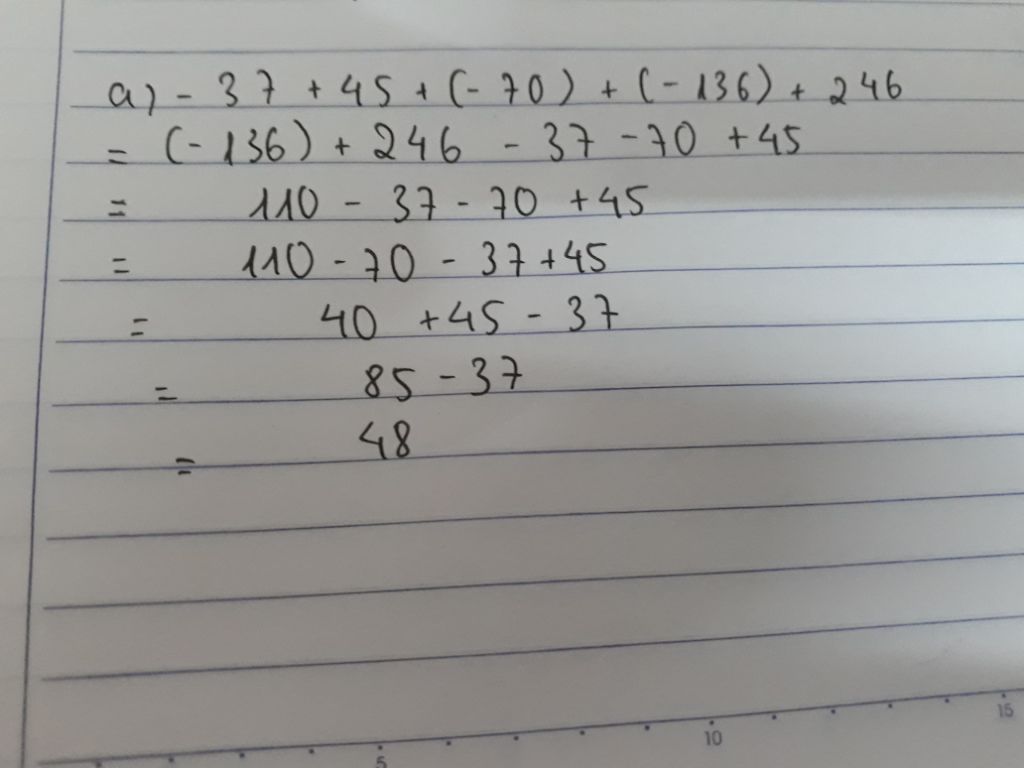 a) - 37 + 45 + (- 70) + (- 136) + 246
= (- 136) + 246 - 37 - 70 + 45
= 110 - 37 - 70 + 45
= 110 - 70 - 37 + 45
= 40 + 45 - 37
= 85 - 37
= 48
5 10 15